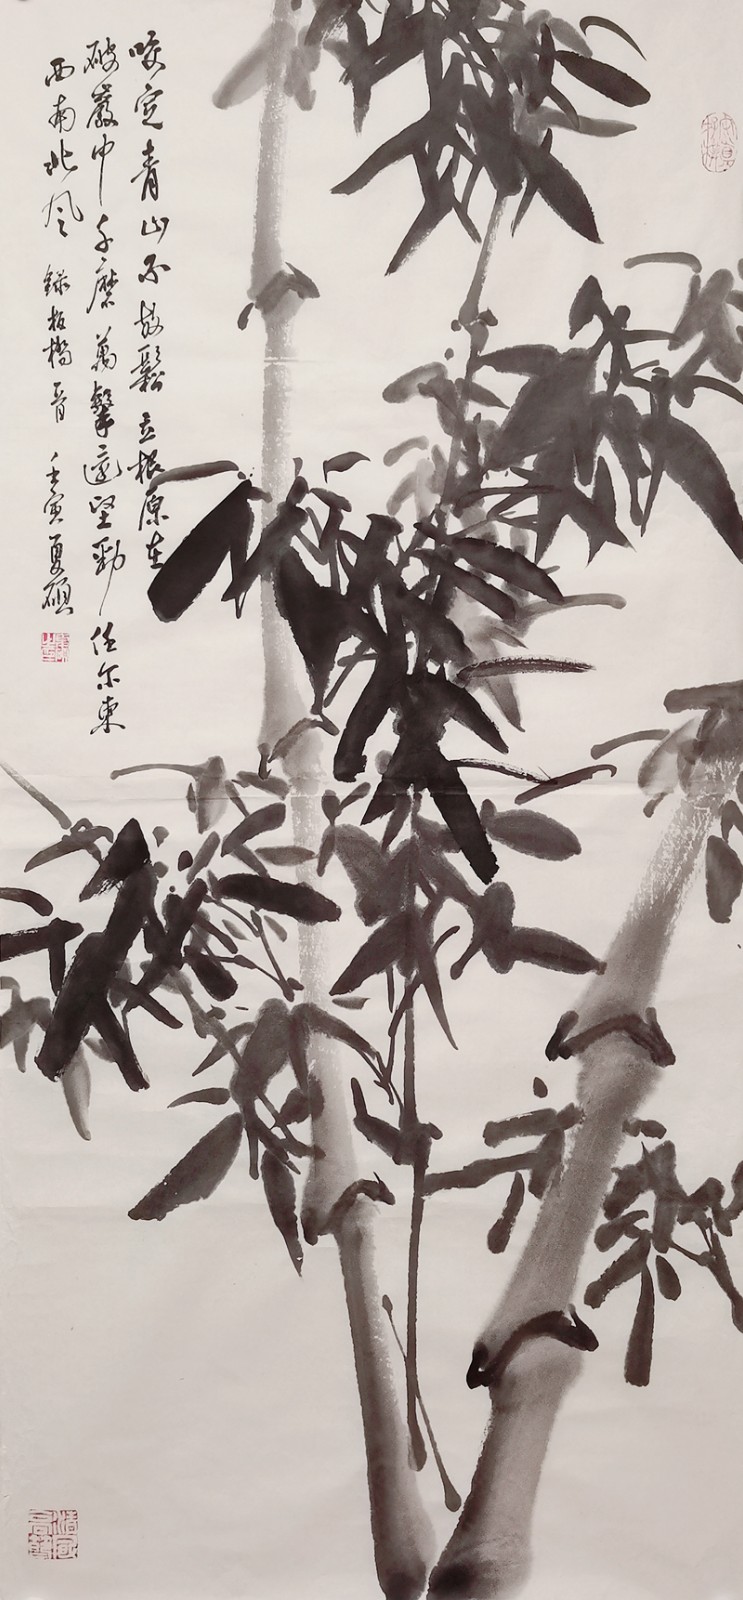 咬定青山不放鬆立根原在
破巖中千磨萬擊還堅勁任尔東
西南北風 錄板橋 壬寅夏碩